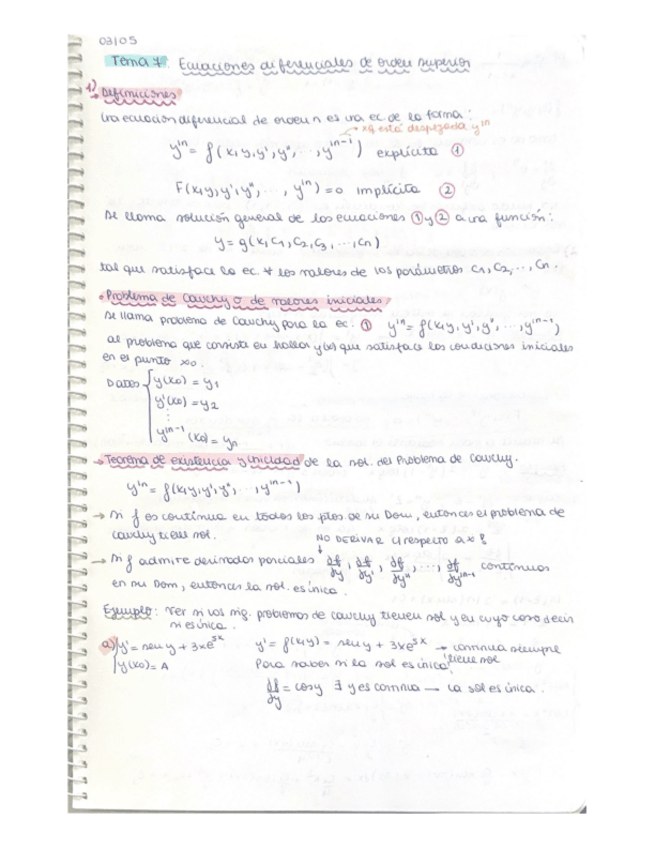 03/05
Tema 7: Ecuaciones diferenciales de orden superior
1) Definiciones
Una ecuación diferencial de orden n es una ec. de la forma:
xq está despejada y^(n
y^(n = f(x, y, y', y'', ..., y^(n-1) explícita ①
F(x, y, y', y'', ..., y^(n) = 0 implícita ②
Se llama solución general de las ecuaciones ① y ② a una función:
y = g(x, C1, C2, C3, ..., Cn)
tal que satisface la ec. ∀ los valores de los parámetros C1, C2, ..., Cn.
• Problema de Cauchy o de valores iniciales
Se llama problema de Cauchy para la ec. ① y^(n = f(x, y, y', y'', ..., y^(n-1)
al problema que consiste en hallar y(x) que satisface las condiciones iniciales
en el punto x0.
Datos { y(x0) = y1
y'(x0) = y2
⋮
y^(n-1 (x0) = yn
→ Teorema de existencia y unicidad de la sol. del Problema de Cauchy.
y^(n = f(x, y, y', y'', ..., y^(n-1)
→ Si f es continua en todos los ptos de su Dom, entonces el problema de
Cauchy tiene sol.
NO DERIVAR f respecto a x
→ Si f admite derivadas parciales ∂f/∂y, ∂f/∂y', ∂f/∂y'', ..., ∂f/∂y^(n-1 continuas
en su Dom, entonces la sol. es única.
Ejemplo: Ver si los sig. problemas de Cauchy tienen sol y en cuyo caso decir
si es única.
a) { y' = sen y + 3xe^5x y' = f(x, y) = sen y + 3xe^5x → continua siempre
y(x0) = A Para saber si la sol es única: tiene sol
∂f/∂y = cos y ∃ y es continua → la sol es única.